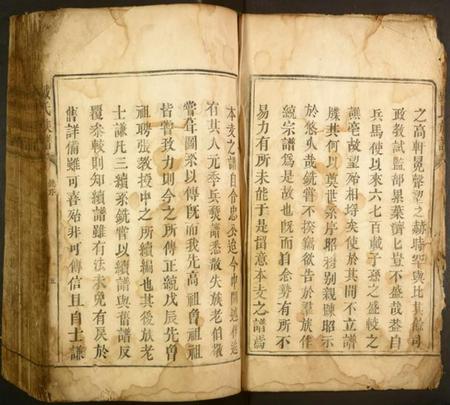 之高軒冕聲望之赫時罕與比其餘司
政教試監部累葉儕匕豈不盛哉蓋自
兵馬使以來六七百載子孫之盛岐之
譙亳故望殆相埒矣使於其間不立譜
牒其何以奠世系序昭穆別親踈昭示
於悠久哉銑嘗不揆竊欲告於羣族作
統宗譜為是故也旣而自念勢有所不
易力有所未能于是留意本支之譜焉
本支之譜自合忠公迄今中間
有其人元季兵燹譜悉散失族老伯
嘗作圖系以傳旣而我先高祖曾祖祖
皆嘗致力則今之所傳正統戊辰先曾
祖聘張教授中之所續編也其後族老
士謙凡三續系銑嘗以續譜與舊譜反
覆叅較則知續譜雖有法未免有戾於
舊詳備雖可喜殆非可傳信且自士謙
戴氏族譜